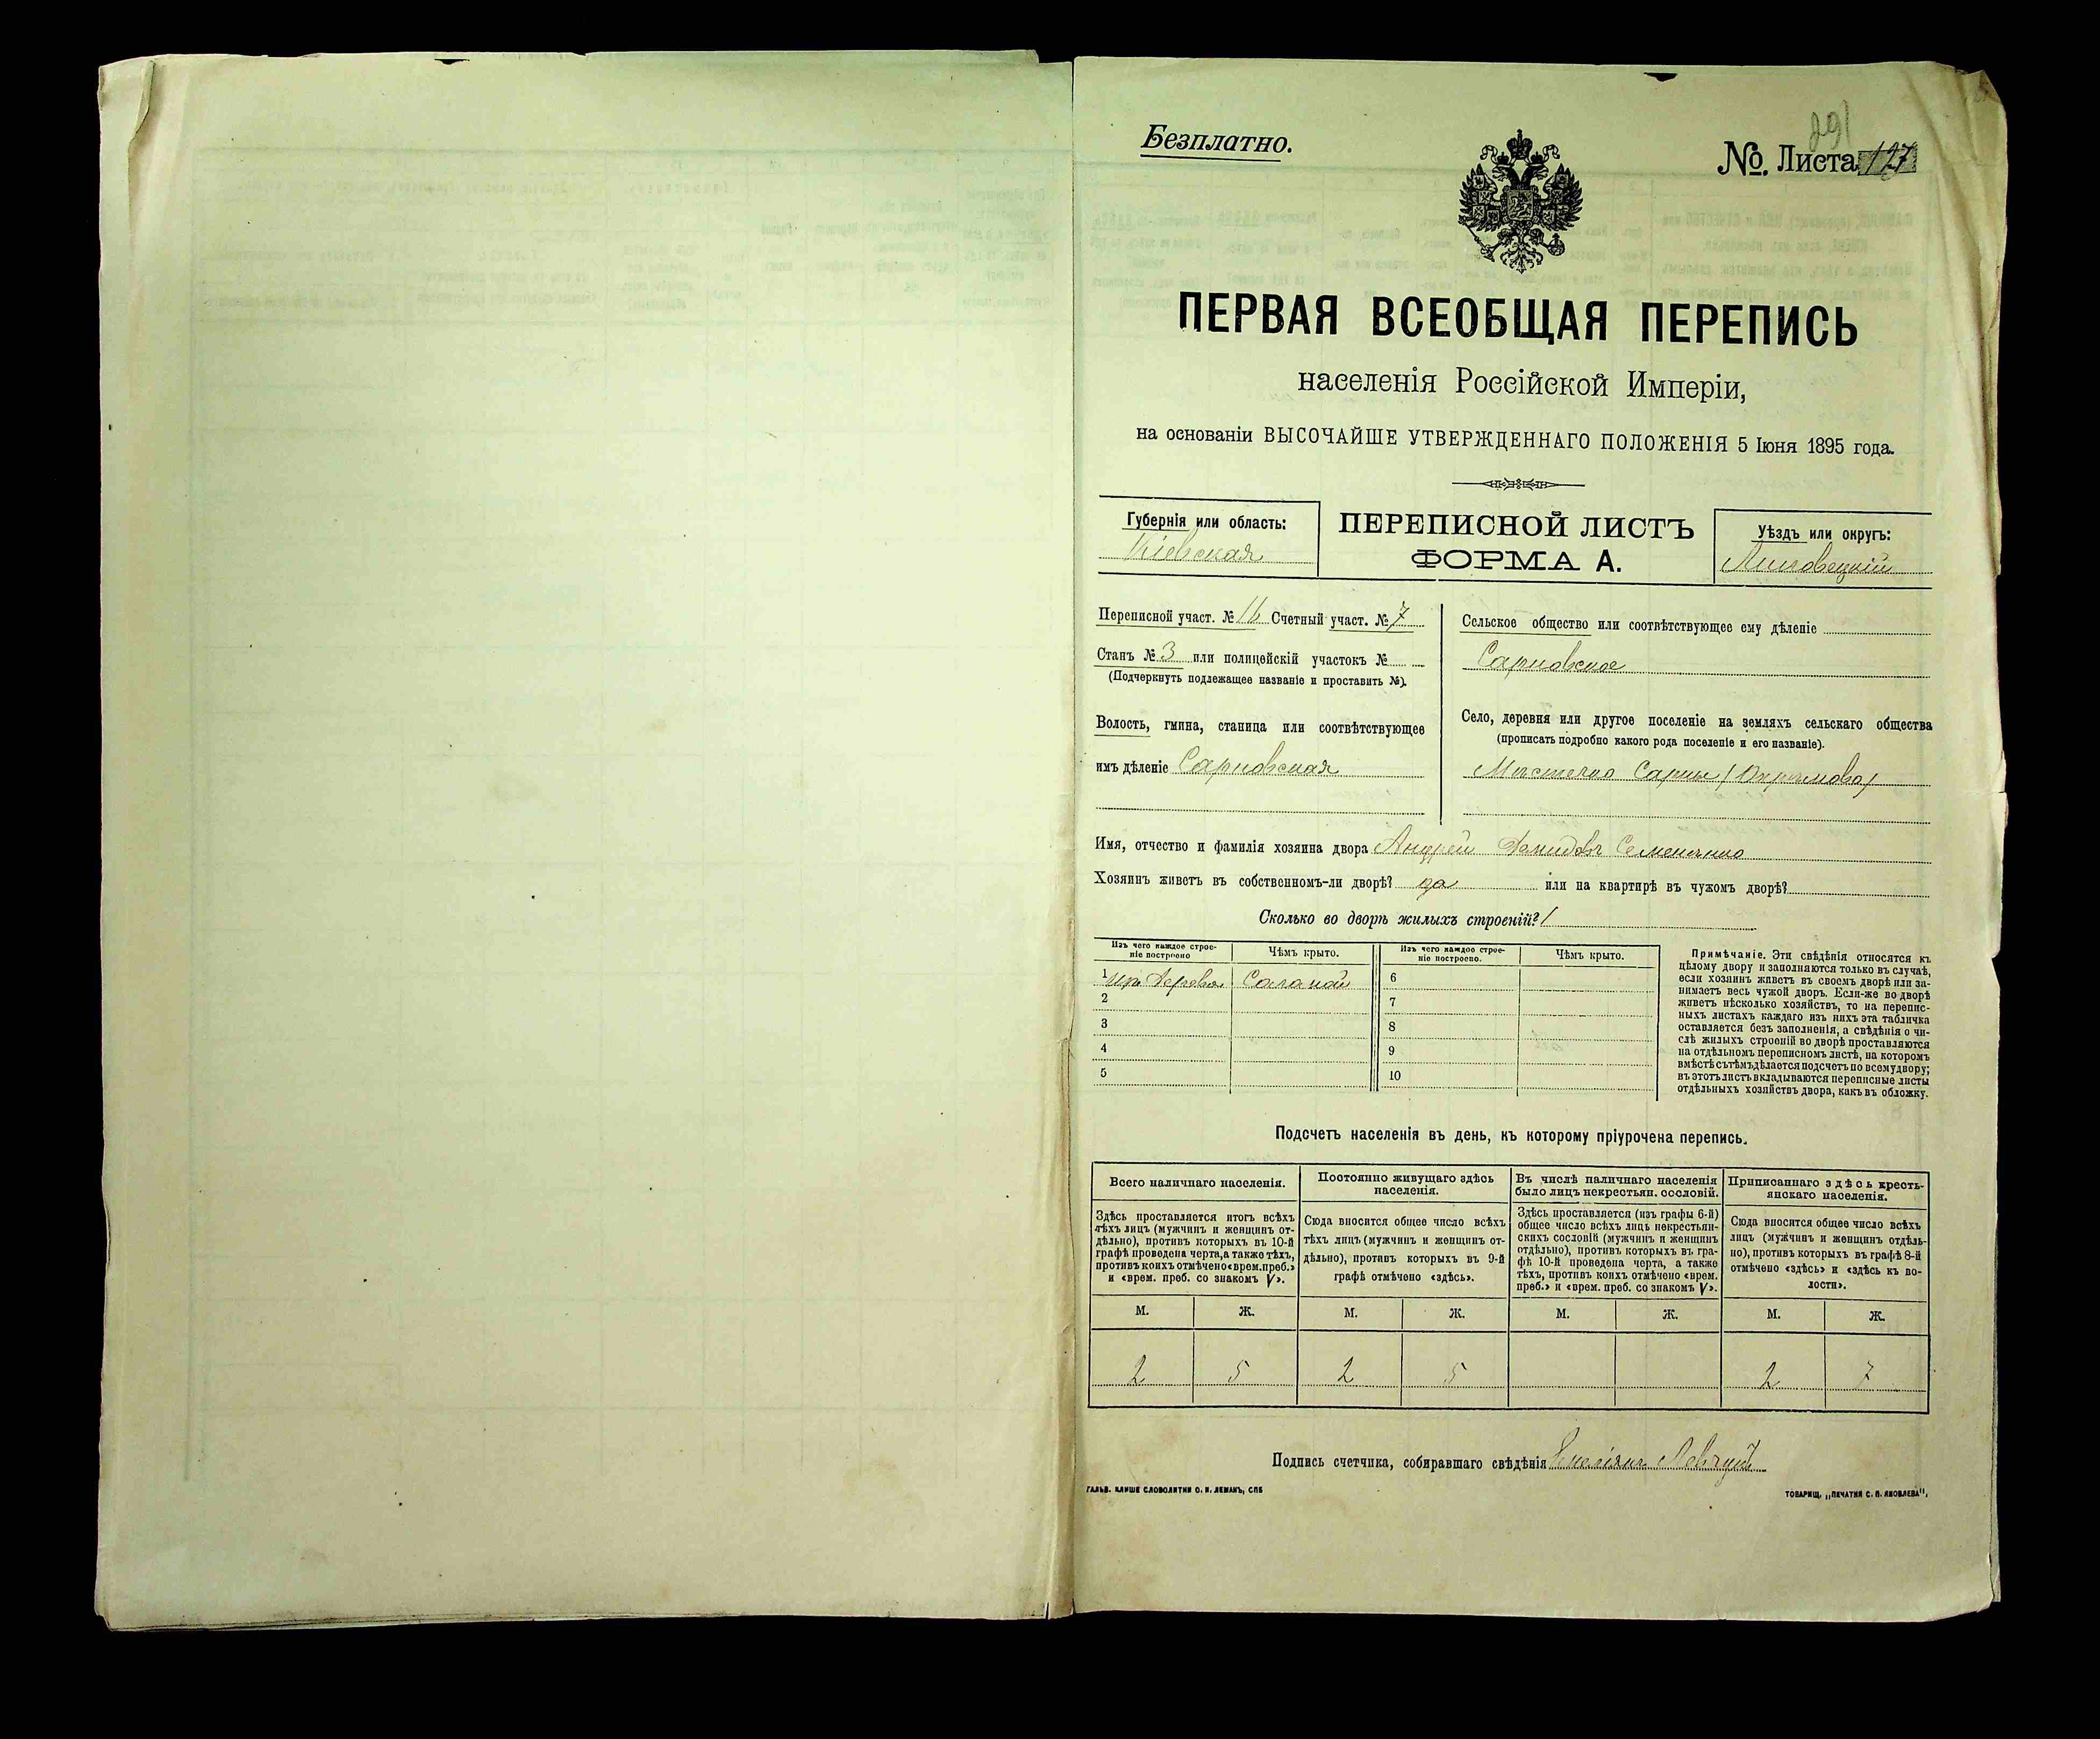 291
Безплатно.
№. Листа 127
ПЕРВАЯ ВСЕОБЩАЯ ПЕРЕПИСЬ
населенія Россійской Имперіи,
на основаніи ВЫСОЧАЙШЕ УТВЕРЖДЕННАГО ПОЛОЖЕНІЯ 5 Іюня 1895 года.
Губернія или область:
Кіевская
ПЕРЕПИСНОЙ ЛИСТЪ
ФОРМА А.
Уѣздъ или округъ:
Липовецкій
Переписной участ. № 16 Счетный участ. № 7
Станъ № 3 или полицейскій участокъ №
(Подчеркнуть подлежащее названіе и проставить №).
Волость, гмина, станица или соотвѣтствующее
имъ дѣленіе Сарновская
Сельское общество или соотвѣтствующее ему дѣленіе
Сарновское
Село, деревня или другое поселеніе на земляхъ сельскаго общества
(прописать подробно какого рода поселеніе и его названіе).
Мѣстечко Сарны
Имя, отчество и фамилія хозяина двора Андрей Семенченко
Хозяинъ живетъ въ собственномъ-ли дворѣ? да или на квартирѣ въ чужомъ дворѣ?
Сколько во дворѣ жилыхъ строеній? 1
Изъ чего каждое строе-
ніе построено
Чѣмъ крыто.
Изъ чего каждое строе-
ніе построено.
Чѣмъ крыто.
1 изъ дерева Соломой
2
3
4
5
6
7
8
9
10
Примѣчаніе. Эти свѣдѣнія относятся къ
цѣлому двору и заполняются только въ случаѣ,
если хозяинъ живетъ въ своемъ дворѣ или за-
нимаетъ весь чужой дворъ. Если-же во дворѣ
живетъ нѣсколько хозяйствъ, то на перепис-
ныхъ листахъ каждаго изъ нихъ эта табличка
оставляется безъ заполненія, а свѣдѣнія о чи-
слѣ жилыхъ строеній во дворѣ проставляются
на отдѣльномъ переписномъ листѣ, на которомъ
вмѣстѣ съ тѣмъ дѣлается подсчетъ по всему двору;
въ этотъ листъ вкладываются переписные листы
отдѣльныхъ хозяйствъ двора, какъ въ обложку.
Подсчетъ населенія въ день, къ которому пріурочена перепись.
Всего наличнаго населенія.
Здѣсь проставляется итогъ всѣхъ
тѣхъ лицъ (мужчинъ и женщинъ от-
дѣльно), противъ которыхъ въ 10-й
графѣ проведена черта, а также тѣхъ,
противъ коихъ отмѣчено «врем. преб.»
и «врем. преб. со знакомъ V».
Постоянно живущаго здѣсь
населенія.
Сюда вносится общее число всѣхъ
тѣхъ лицъ (мужчинъ и женщинъ от-
дѣльно), противъ которыхъ въ 9-й
графѣ отмѣчено «здѣсь».
Въ числѣ наличнаго населенія
было лицъ некрестьян. сословій.
Здѣсь проставляется (изъ графы 6-й)
общее число всѣхъ лицъ некрестьян-
скихъ сословій (мужчинъ и женщинъ
отдѣльно), противъ которыхъ въ гра-
фѣ 10-й проведена черта, а также
тѣхъ, противъ коихъ отмѣчено «врем.
преб.» и «врем. преб. со знакомъ V».
Приписаннаго здѣсь кресть-
янскаго населенія.
Сюда вносится общее число всѣхъ
лицъ (мужчинъ и женщинъ отдѣль-
но), противъ которыхъ въ графѣ 8-й
отмѣчено «здѣсь» и «здѣсь къ во-
лости».
М. Ж. М. Ж. М. Ж. М. Ж.
2 5 2 5 2 7
Подпись счетчика, собиравшаго свѣдѣнія
ГАЛЬВ. КЛИШЕ СЛОВОЛИТНИ О. И. ЛЕМАНЪ, СПБ
ТОВАРИЩ. „ПЕЧАТНИ С. П. ЯКОВЛЕВА",